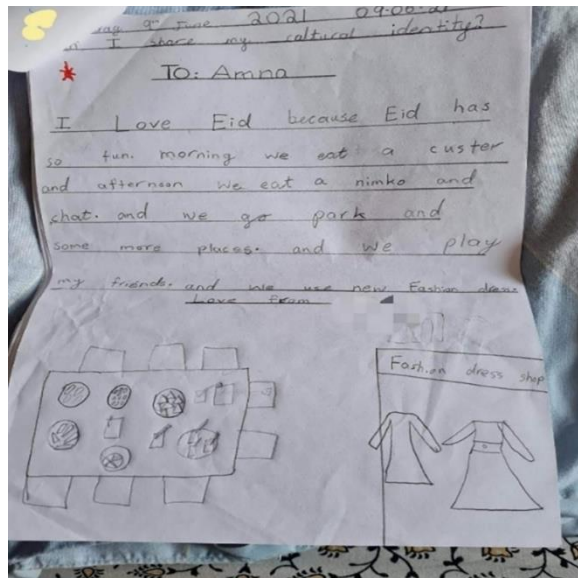 9th June 2021 09.06.21
I share my caltural identity?
To: Amna
I Love Eid because Eid has
so fun. morning we eat a custer
and afternoon we eat a nimko and
chat. and we go park and
some more places. and we play
my friends. and we use new Fashion dress
Love from
Fashion dress shop